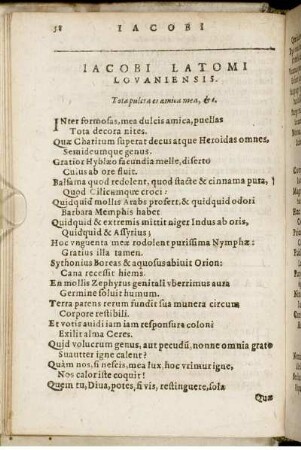 58 IACOBI
IACOBI LATOMI
LOVANIENSIS.
Tota pulcra es amica mea, &c.
INter formosas, mea dulcis amica, puellas
Tota decora nites.
Quæ Charitum superat decus atque Heroidas omnes,
Semideumque genus.
Gratior Hyblæo facundia melle, diserto
Cuius ab ore fluit.
Balsama quod redolent, quod stacte & cinnama pura,
Quod Cilicumque croci:
Quidquid mollis Arabs profert, & quidquid odori
Barbara Memphis habet
Quidquid & extremis mittit niger Indus ab oris,
Quidquid & Assyrius;
Hoc vnguenta meæ rodolent purissima Nymphæ:
Gratius illa tamen.
Sythonius Boreas & aquosus abiuit Orion:
Cana recessit hiems.
En mollis Zephyrus genitali vberrimus aura
Germine soluit humum.
Terra parens rerum fundit sua munera circum
Corpore restibili.
Et votis auidi iam iam responsura coloni
Exilit alma Ceres.
Quid volucrum genus, aut pecudũ, nonne omnia grato
Suauiter igne calent?
Quàm nos, si nescis, mea lux, hoc vrimur igne,
Nos calor iste coquit!
Quem tu, Diua, potes, si vis, restinguere, sola
Quæ